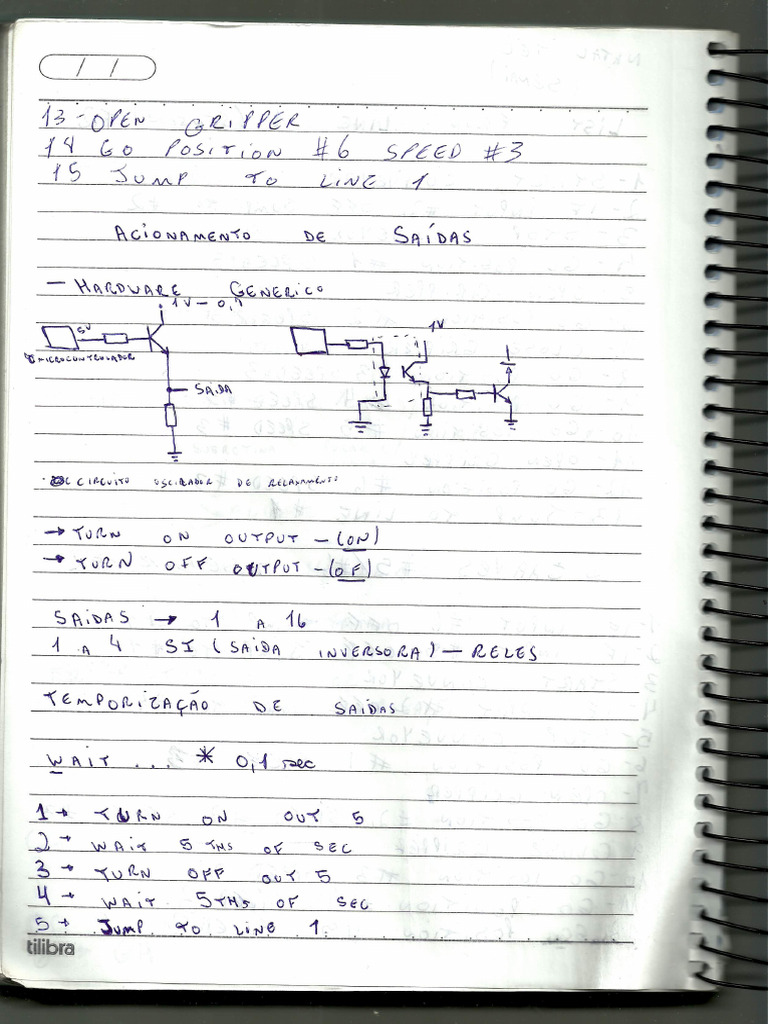 13 - OPEN GRIPPER
14 GO POSITION #6 SPEED #3
15 JUMP TO LINE 1
ACIONAMENTO DE SAÍDAS
— HARDWARE GENERICO
1V — 0,1
5V
MICROCONTROLADOR
SAIDA
1V
CIRCUITO OSCILADOR DE RELAXAMENTO
→ TURN ON OUTPUT - (ON)
→ TURN OFF OUTPUT - (OF)
SAIDAS → 1 A 16
1 A 4 SI (SAIDA INVERSORA) — RELES
TEMPORIZAÇÃO DE SAIDAS
WAIT ... * 0,1 sec
1 → TURN ON OUT 5
2 → WAIT 5 THS OF SEC
3 → TURN OFF OUT 5
4 → WAIT 5THS OF SEC
5 → JUMP TO LINE 1.
tilibra